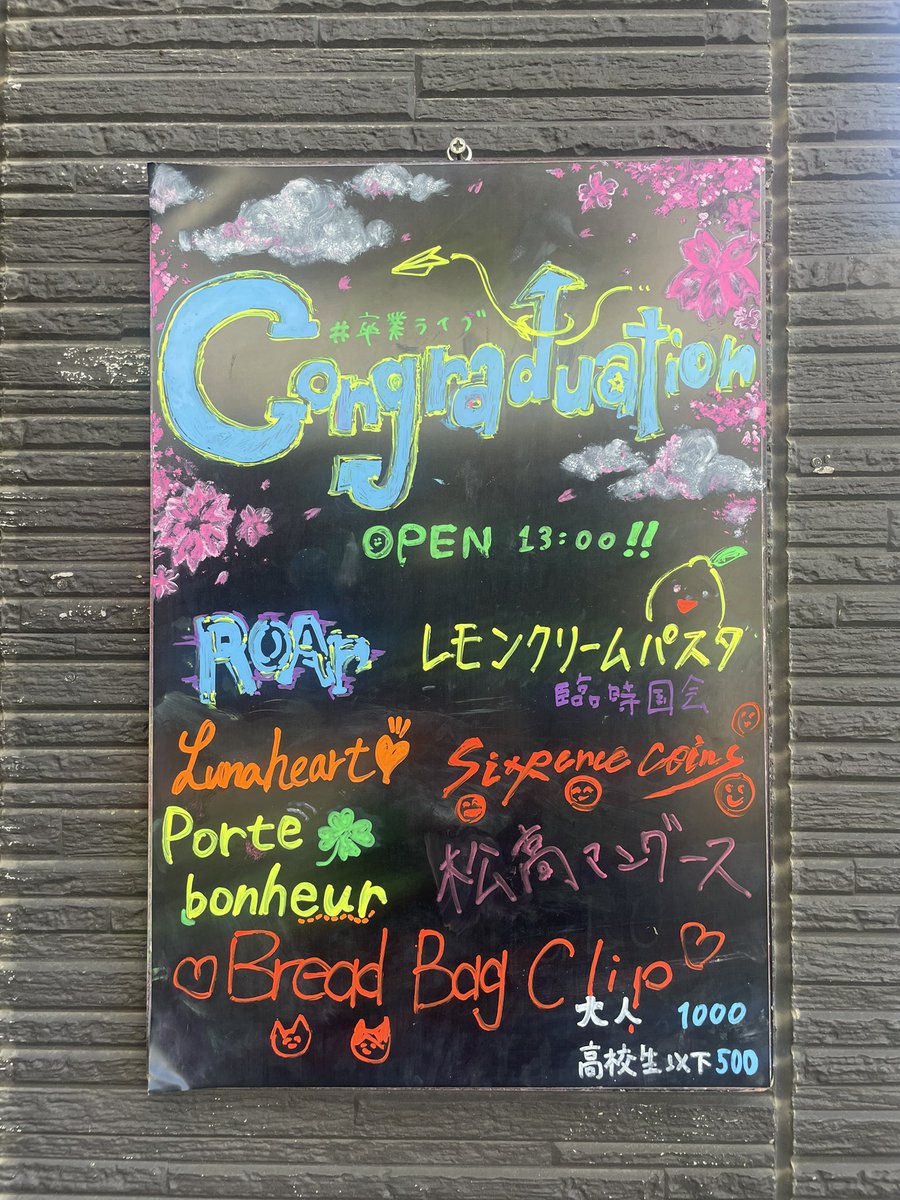 #卒業ライブ
Congraduation
OPEN 13:00!!
ROAr
レモンクリームパスタ
臨時国会
Lunaheart
Sixpence coins
Porte
bonheur
松高マングース
Bread Bag Clip
大人 1000
高校生以下 500